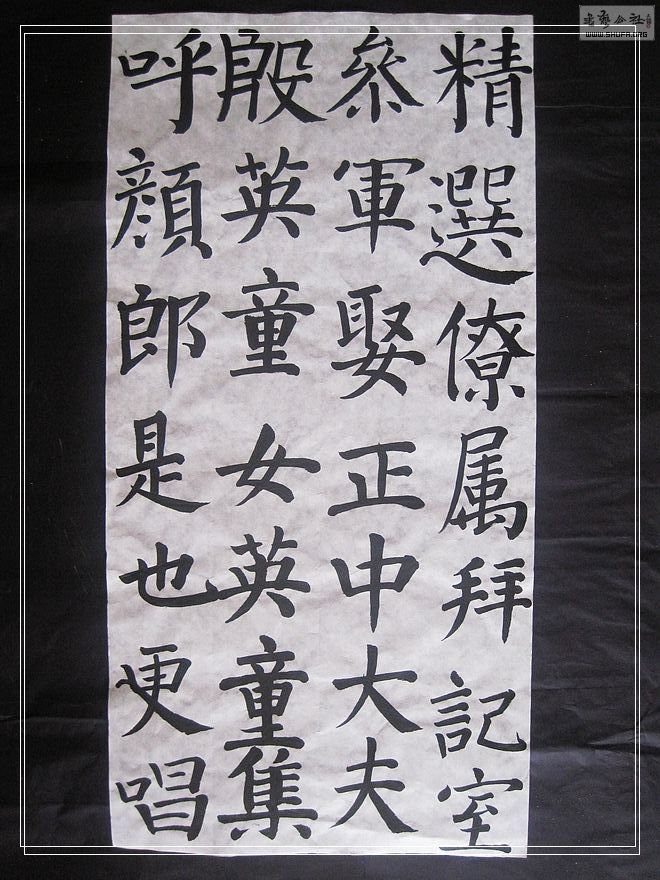 精選僚属拜記室
叅軍娶正中大夫
殷英童女英童集
呼顔郎是也更唱
WWW.SHUFA.ORG